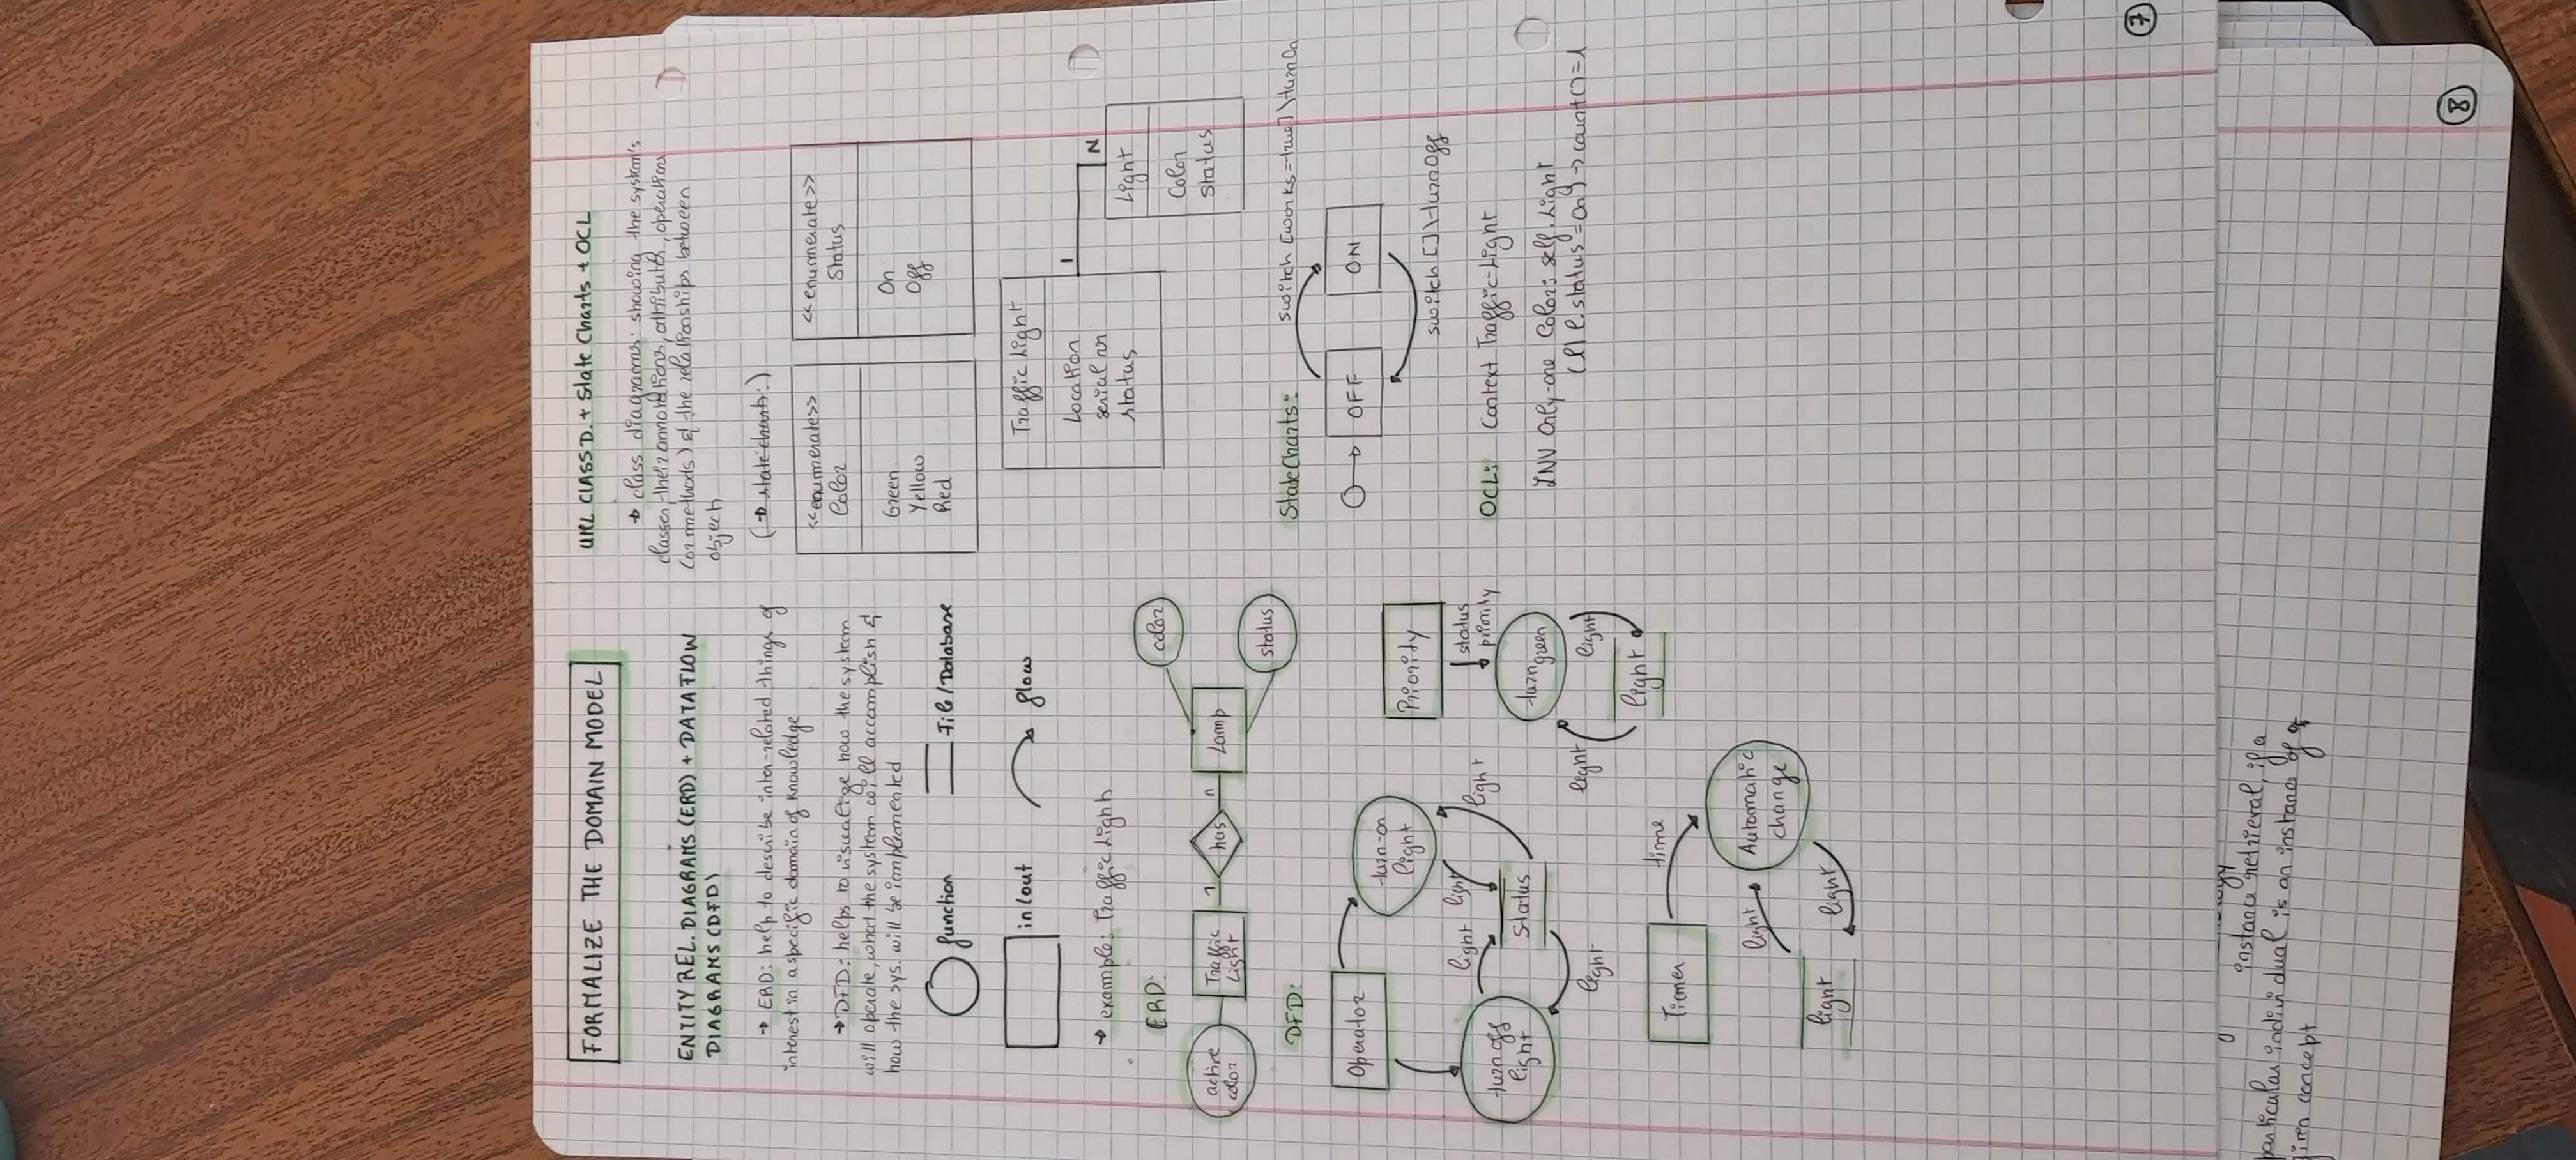 FORMALIZE THE DOMAIN MODEL
ENTITY REL. DIAGRAMS (ERD) + DATAFLOW
DIAGRAMS (DFD)
→ ERD: help to describe inter-related things of
interest in a specific domain of knowledge
→ DFD: helps to visualize how the system
will operate, what the system will accomplish &
how the sys. will be implemented
function
File/Database
in/out
flow
→ example: Traffic Light
ERD:
active
color
Traffic
Light
1
has
n
Lamp
color
status
DFD:
Operator
turn-on
light
light
light
Status
light
light
turn off
light
Priority
status
priority
turn
green
light
light
light
Timer
time
Automatic
change
light
light
light
UML CLASS D. + State Charts + OCL
→ class diagrams: showing the system's
classes, their annotations, attributes, operations
(or methods) & the relationships between
objects
(→ state charts:)
<<enumerate>>
Color
Green
Yellow
Red
<<enumerate>>
Status
On
Off
Traffic Light
Location
serial nr
status
1
N
Light
Color
Status
StateCharts:
switch [works=true] \turnOn
OFF
ON
switch [] \turnOff
OCL:
Context Traffic-Light
INV Only-one Color: self.light
(l| l.status = on) → count() = 1
7
instance retrieval, if a
particular individual is an instance of a
given concept
8